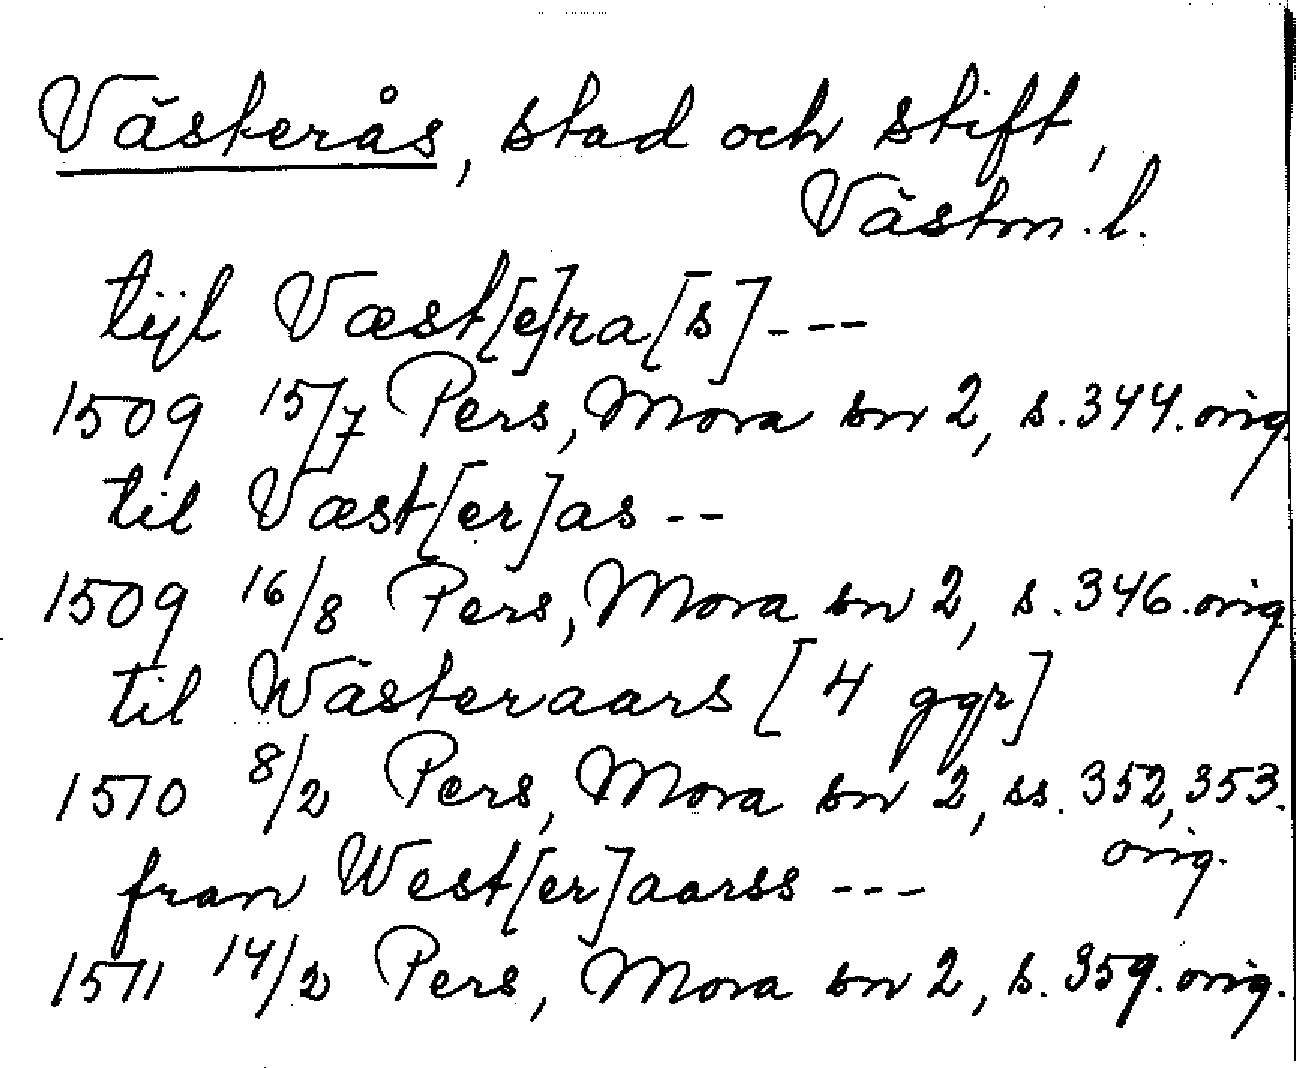 Västerås, stad och stift,
Västm.l.
tijl Væst[e]ra[s]---
1509 15/7 Pers, Mora sn 2, s. 344. orig.
til Væst[er]as--
1509 16/8 Pers, Mora sn 2, s. 346. orig.
til Wästeraars [4 ggr]
1510 8/2 Pers, Mora sn 2, ss. 352, 353.
orig.
fran West[er]aarss ---
1511 14/2 Pers, Mora sn 2, s. 359. orig.